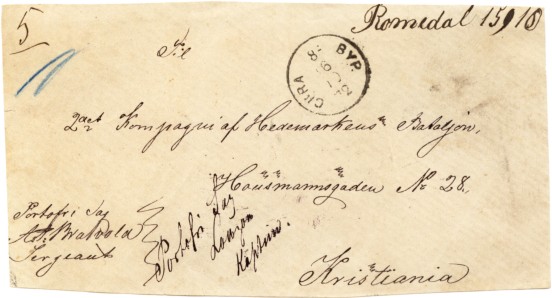 5
Romedal 15 9 10
Til
CHRA BYP.
2det Kompagni af Hedemarkens Bataljon,
Hausmannsgaden No 28.
Kristiania
Portofri Sag
Bratvold
Sergeant
Portofri Sag
Kaptein.